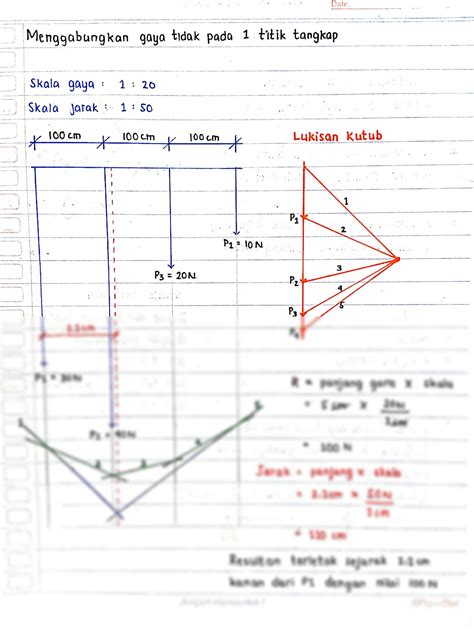 Date.
Menggabungkan gaya tidak pada 1 titik tangkap
Skala gaya : 1 : 20
Skala jarak : 1 : 50
100 cm 100 cm 100 cm
Lukisan Kutub
1
P1
2
P1 = 10N
3
P3 = 20N
P2
4
P3
5
2.2cm
P1 = 30N
R = panjang garis x skala
1
5
P2 = 40N
2
3
4
= 100 N
Jarak = panjang x skala
= 110 cm
Resultan terletak sejarak 2.2 cm
kanan dari P1 dengan nilai 100 N